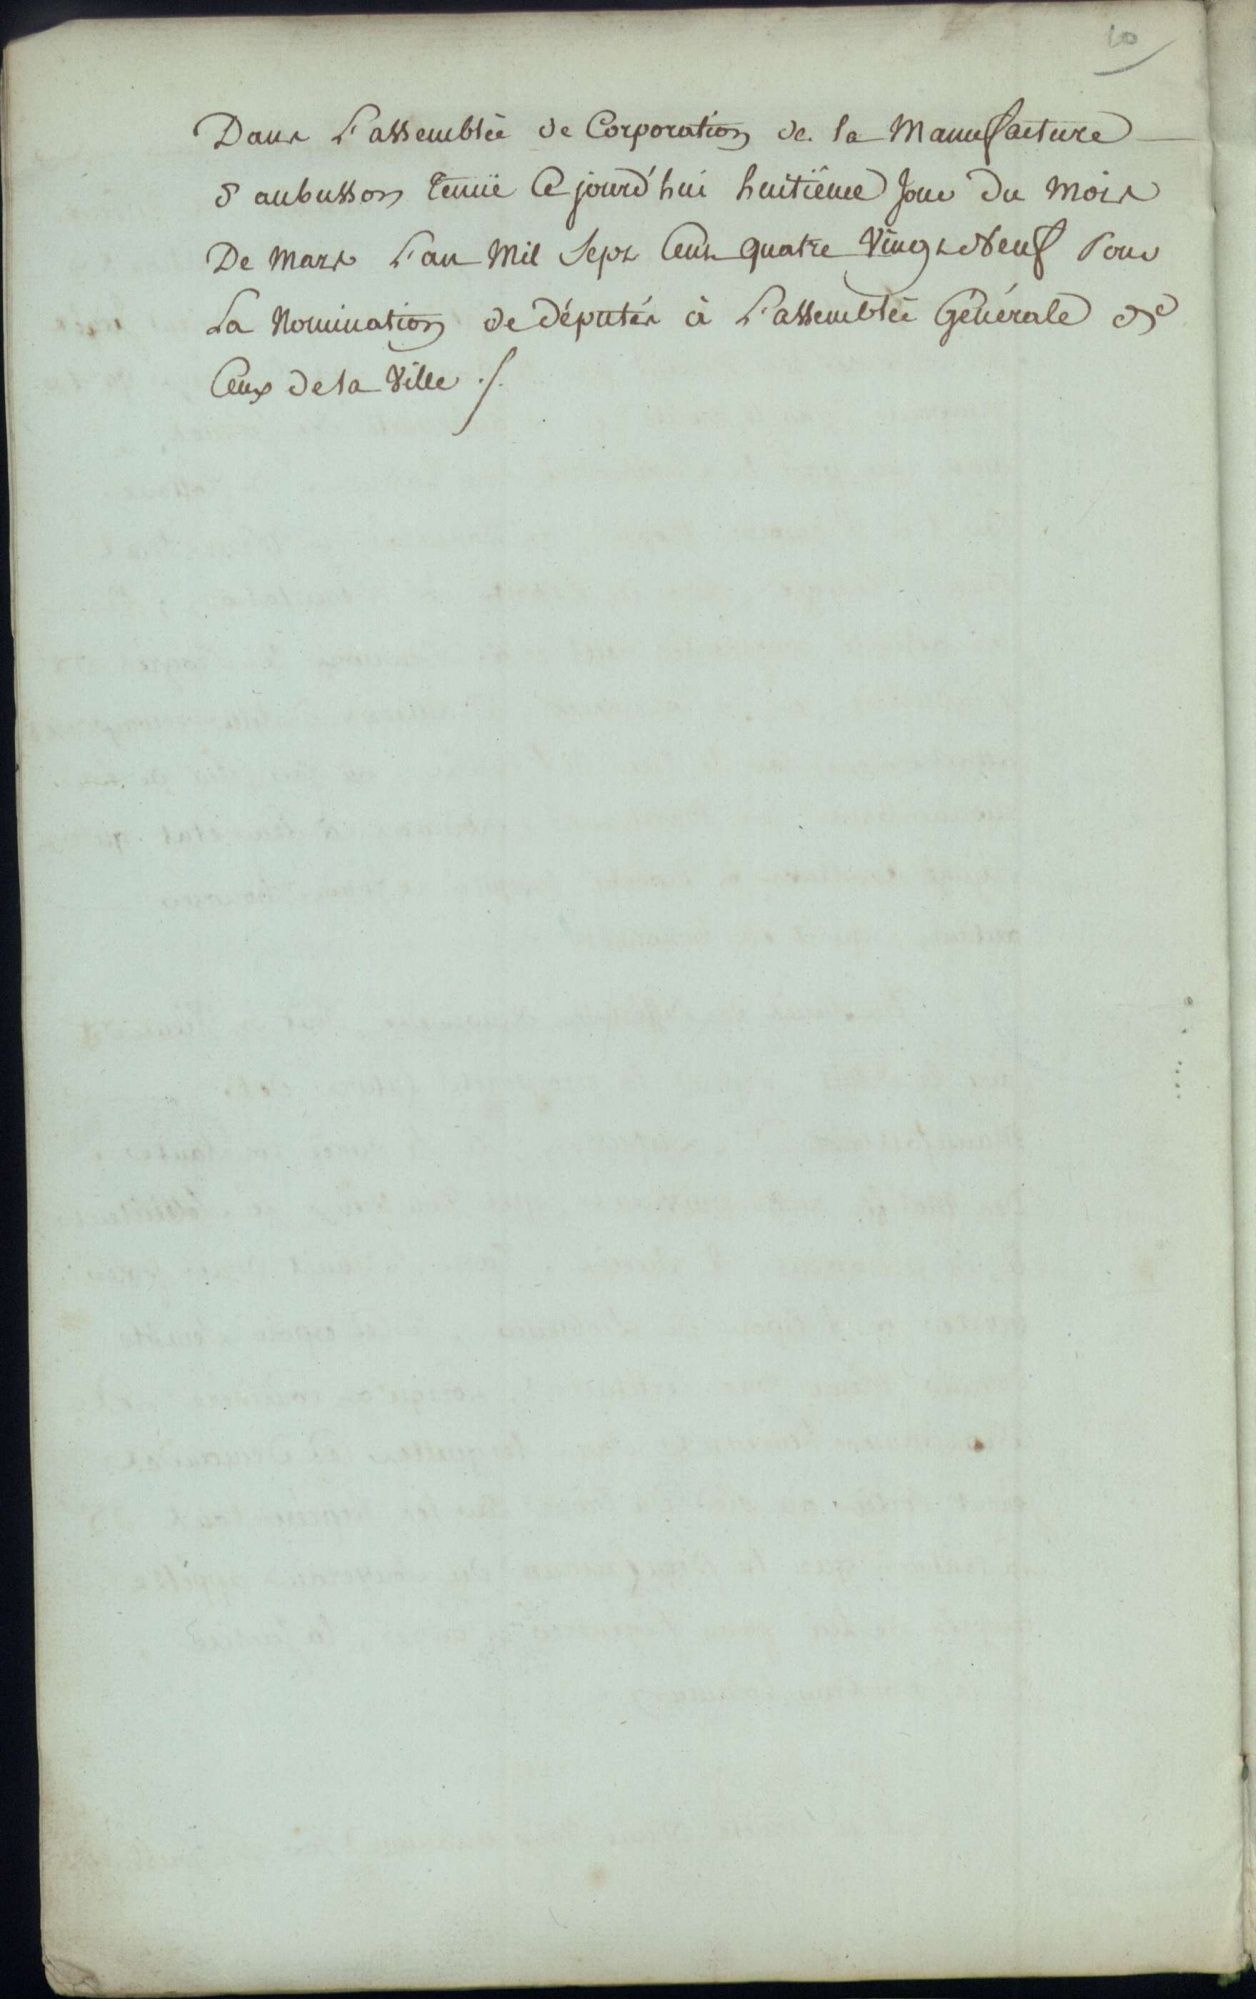 10
Dans L'assemblée de Corporation de la Manufacture
d'aubusson tenuë Ce jourd'hui huitiême Jour Du Mois
De Mars L'an Mil Sept Cent quatre Vingt Neuf Pour
La Nomination de députés à L'assemblée Générale de
Ceux de la Ville ./.